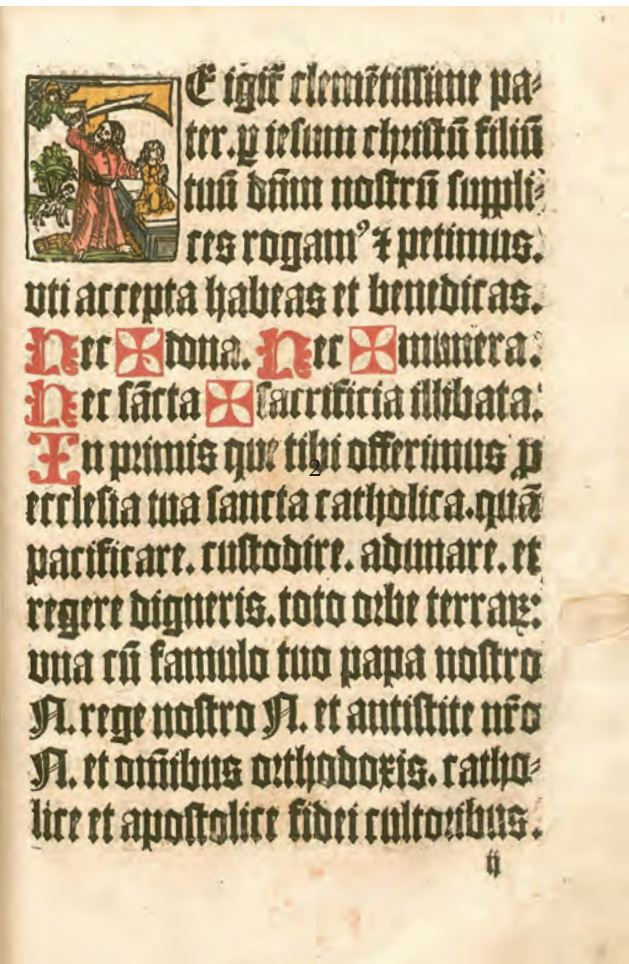 E igit̃ clemẽtissime pa⸗
ter. ꝑ iesum christũ filiũ
tuũ dñm nostrũ suppli⸗
ces rogamꝰ ⁊ petimus.
vti accepta habeas et benedicas.
Hec ✠ dona. Hec ✠ munera.
Hec sãcta ✠ sacrificia illibata.
In primis que tibi offerimus ꝓ
2
ecclesia tua sancta catholica. quã
pacificare. custodire. adunare. et
regere digneris. toto orbe terraꝝ:
vna cũ famulo tuo papa nostro
N. rege nostro N. et antistite nr̃o
N. et om̃ibus orthodoxis. catho⸗
lice et apostolice fidei cultoribus.
ij